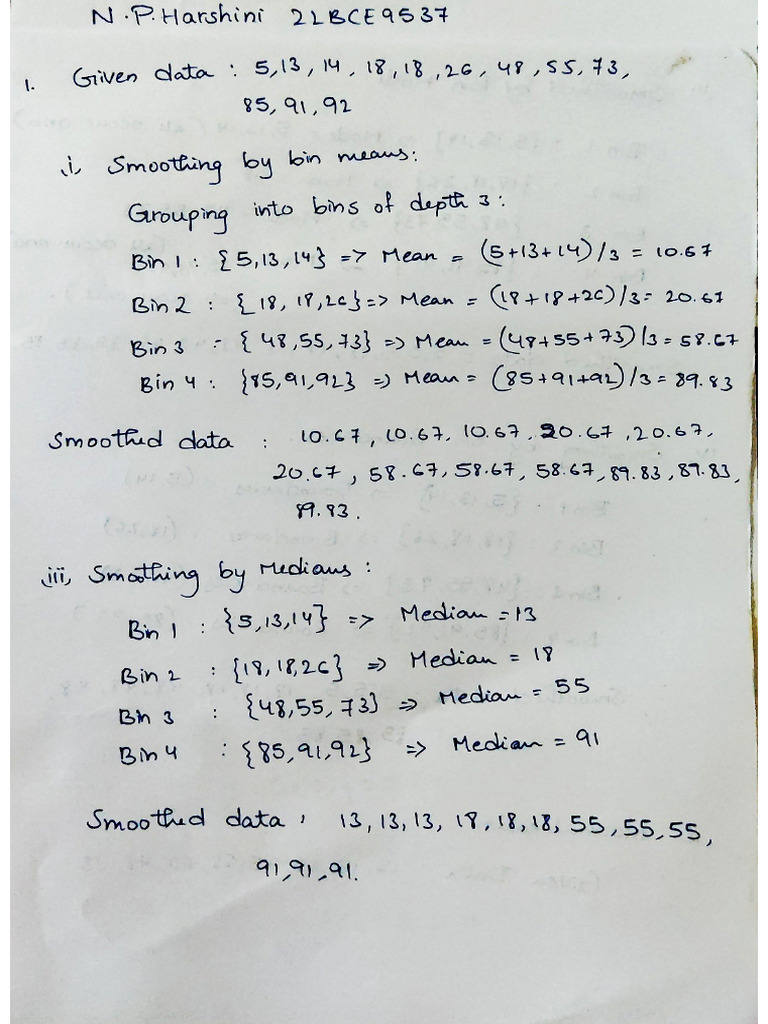 N.P.Harshini 21BCE9537
1. Given data : 5,13,14,18,18,26,48,55,73,
85,91,92
i, Smoothing by bin means:
Grouping into bins of depth 3:
Bin 1 : {5,13,14} => Mean = (5+13+14)/3 = 10.67
Bin 2 : {18, 18,26} => Mean = (18+18+26)/3 = 20.67
Bin 3 - { 48,55,73} => Mean = (48+55+73)/3 = 58.67
Bin 4 : {85,91,92} => Mean = (85+91+92)/3 = 89.83
Smoothed data : 10.67, 10.67, 10.67, 20.67, 20.67,
20.67, 58.67, 58.67, 58.67, 89.83, 89.83,
89.83.
iii, Smoothing by Medians :
Bin 1 : {5,13,14} => Median = 13
Bin 2 : {18,18,26} => Median = 18
Bin 3 : {48,55,73} => Median = 55
Bin 4 : {85,91,92} => Median = 91
Smoothed data, 13,13,13, 18,18,18, 55,55,55,
91,91,91.